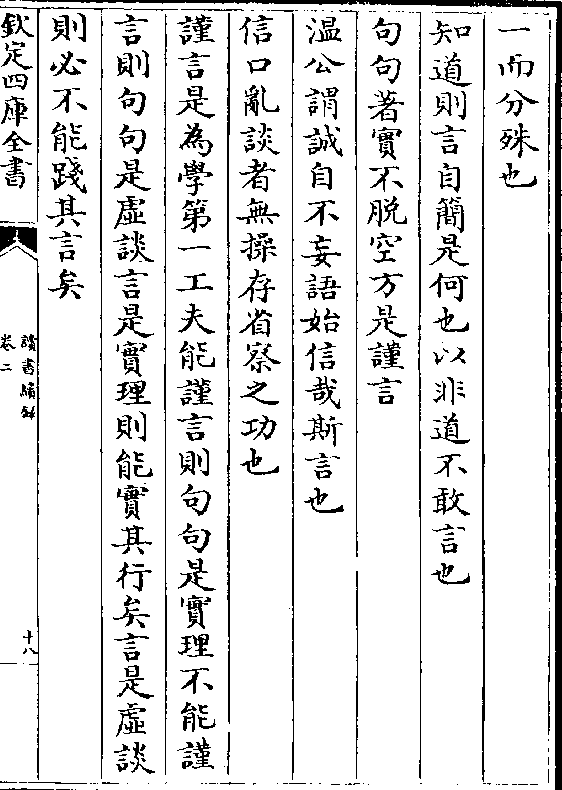 一而分殊也
知道則言自簡是何也以非道不敢言也
句句著實不脱空方是謹言
温公謂誠自不妄語始信哉斯言也
信口亂談者無操存省察之功也
謹言是為學第一工夫能謹言則句句是實理不能謹
言則句句是虛談言是實理則能實其行矣言是虛談
則必不能踐其言矣
欽定四庫全書
讀書續録
卷二
十八